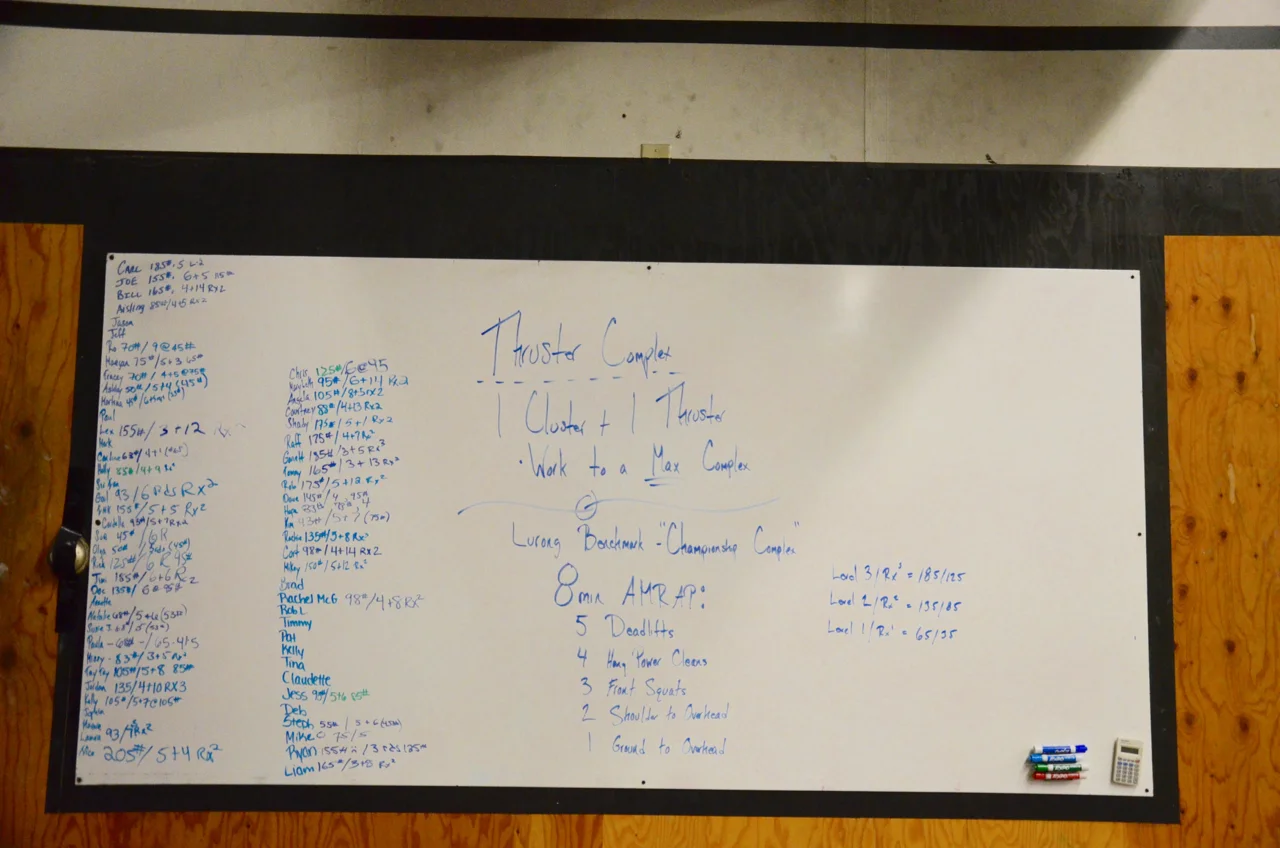 CARL 185#, 5
JOE 155#, 6+5 115#
BILL 165#, 4+14 RX2
Aisling 85#/4+5 Rx2
Jason
Jeff
Ro 70#/ 9@45#
Maegan 75#/5+3 65#
Tracey 70#/ 4+5@75#
Ashley 50#/5+4 (45#)
Paul
Lex 155#/ 3+12
Mark
Caroline 68#/4+1
Holly 85#/4+9 Rx²
Gail 93/6 Rds Rx²
155#/5+5 Rx²
95#/5+7 Rx2
Sue 45#/6R
Olga 50#
Rick 125#/6 R 95#
Jim 185#/6+6
Doc 135#/6@95#
Annette
Natalie 68#/5+6(53#)
Susie
Paula
Henry - 83#/3+5 Rx²
TayTay 105#/5+8 85#
Jordan 135/4+10 RX3
Kelly 105#/5+7@105#
Lauren 93/4Rx²
Nico 205#/5+4 Rx²
Chris 125#/6@45
95#/6+14 Rx2
Angela 105#/8+5rx2
Courtney 88#/4+13 Rx2
Shelby 175#/5+1 Rx2
Raff 175#/4+7Rx²
135#/3+5 Rx³
Tommy 165#/3+13 Rx³
Rob 175#/5+12 Rx²
Dave 145#/4 95#
Hope
Kim 93#/5+7 (75#)
135#/5+8Rx²
Cort 98#/4+14 RX2
Mikey 150#/5+12 Rx²
Brad
Rachel McG 98#/4+8Rx²
Rob L
Timmy
Pat
Kelly
Tina
Claudette
Jess 95#/5+6 85#
Deb
Steph 55#/5+6(45#)
Mike O 75/5
Ryan 155#/3 rds 135#
Liam 165#/3+8 Rx²
Thruster Complex
1 Cluster + 1 Thruster
• Work to a Max Complex
Lurong Benchmark - "Championship Complex"
8min AMRAP:
5 Deadlifts
4 Hang Power Cleans
3 Front Squats
2 Shoulder to Overhead
1 Ground to Overhead
Level 3/Rx³ = 185/125
Level 2/Rx² = 135/85
Level 1/Rx¹ = 65/35
EXPO